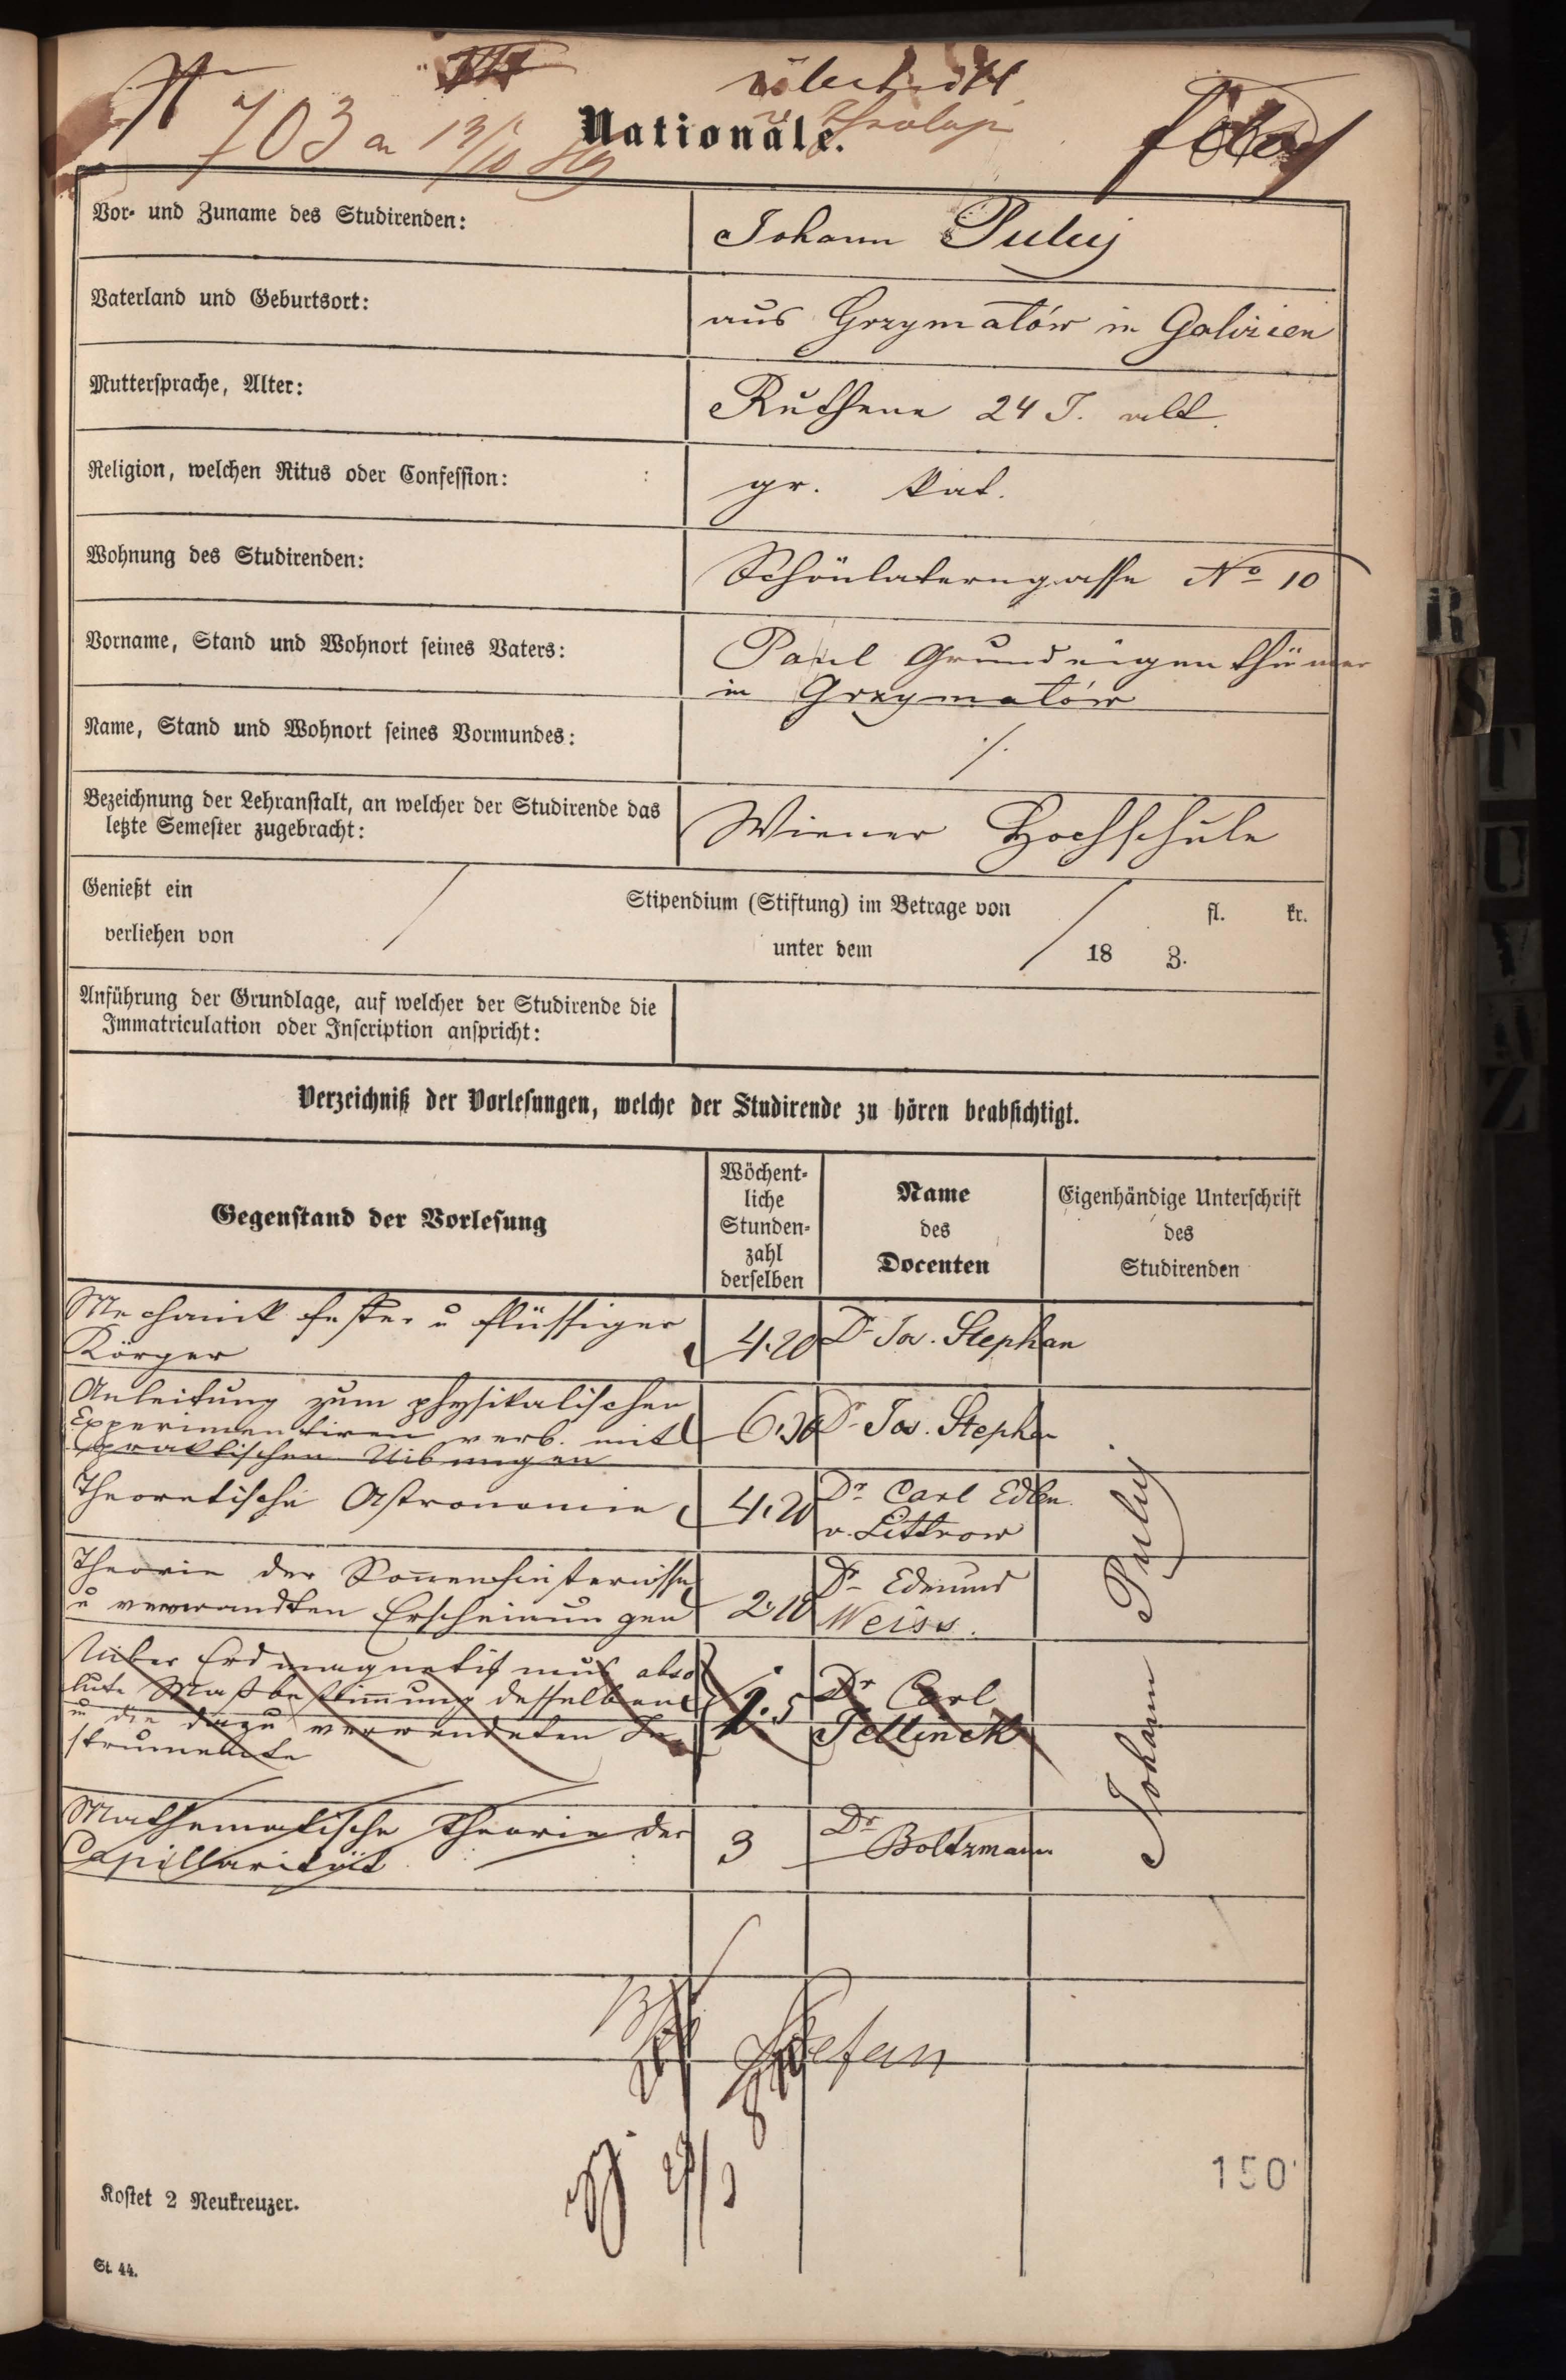 703 a 13/10 69
Nationale.
Vor- und Zuname des Studirenden:
Johann Puluj
Vaterland und Geburtsort:
aus Grzymałów in Galizien
Muttersprache, Alter:
Ruthene 24 J. alt.
Religion, welchen Ritus oder Confession:
gr. kat.
Wohnung des Studirenden:
Schönlaterngasse No 10
Vorname, Stand und Wohnort seines Vaters:
Paul Grundeigenthümer
in Grzymałów
Name, Stand und Wohnort seines Vormundes:
./.
Bezeichnung der Lehranstalt, an welcher der Studirende das
letzte Semester zugebracht:
Wiener Hochschule
Genießt ein / Stipendium (Stiftung) im Betrage von / fl. kr.
verliehen von unter dem / 18 Z.
Anführung der Grundlage, auf welcher der Studirende die
Immatriculation oder Inscription anspricht:
Verzeichniß der Vorlesungen, welche der Studirende zu hören beabsichtigt.
Gegenstand der Vorlesung
Wöchent-
liche
Stunden-
zahl
derselben
Name
des
Docenten
Eigenhändige Unterschrift
des
Studirenden
Mechanick fester u flüssiger
Körper
4.20
Dr Jos. Stephan
Anleitung zum physikalischen
Experimentiren verb. mit
praktischen Uibungen
6.30
Dr Jos. Stephan
Theoretische Astronomie
4.20
Dr Carl Edlen
v. Littrow
Theorie der Sonnenfinsternisse
u verwandten Erscheinungen
2.10
Dr Edmund
Weiss.
Uiber Erdmagnetismus abso
lute Maßbestimmung desselben
u die dazu verwendeten In-
strumente
1.5
Dr Carl
Jellinek
Mathematische Theorie der
Capillarität
3
Dr
Boltzmann
Johann Puluj
Stefan
150
Kostet 2 Neukreuzer.
St. 44.
R
S
T
U
V
W
Z